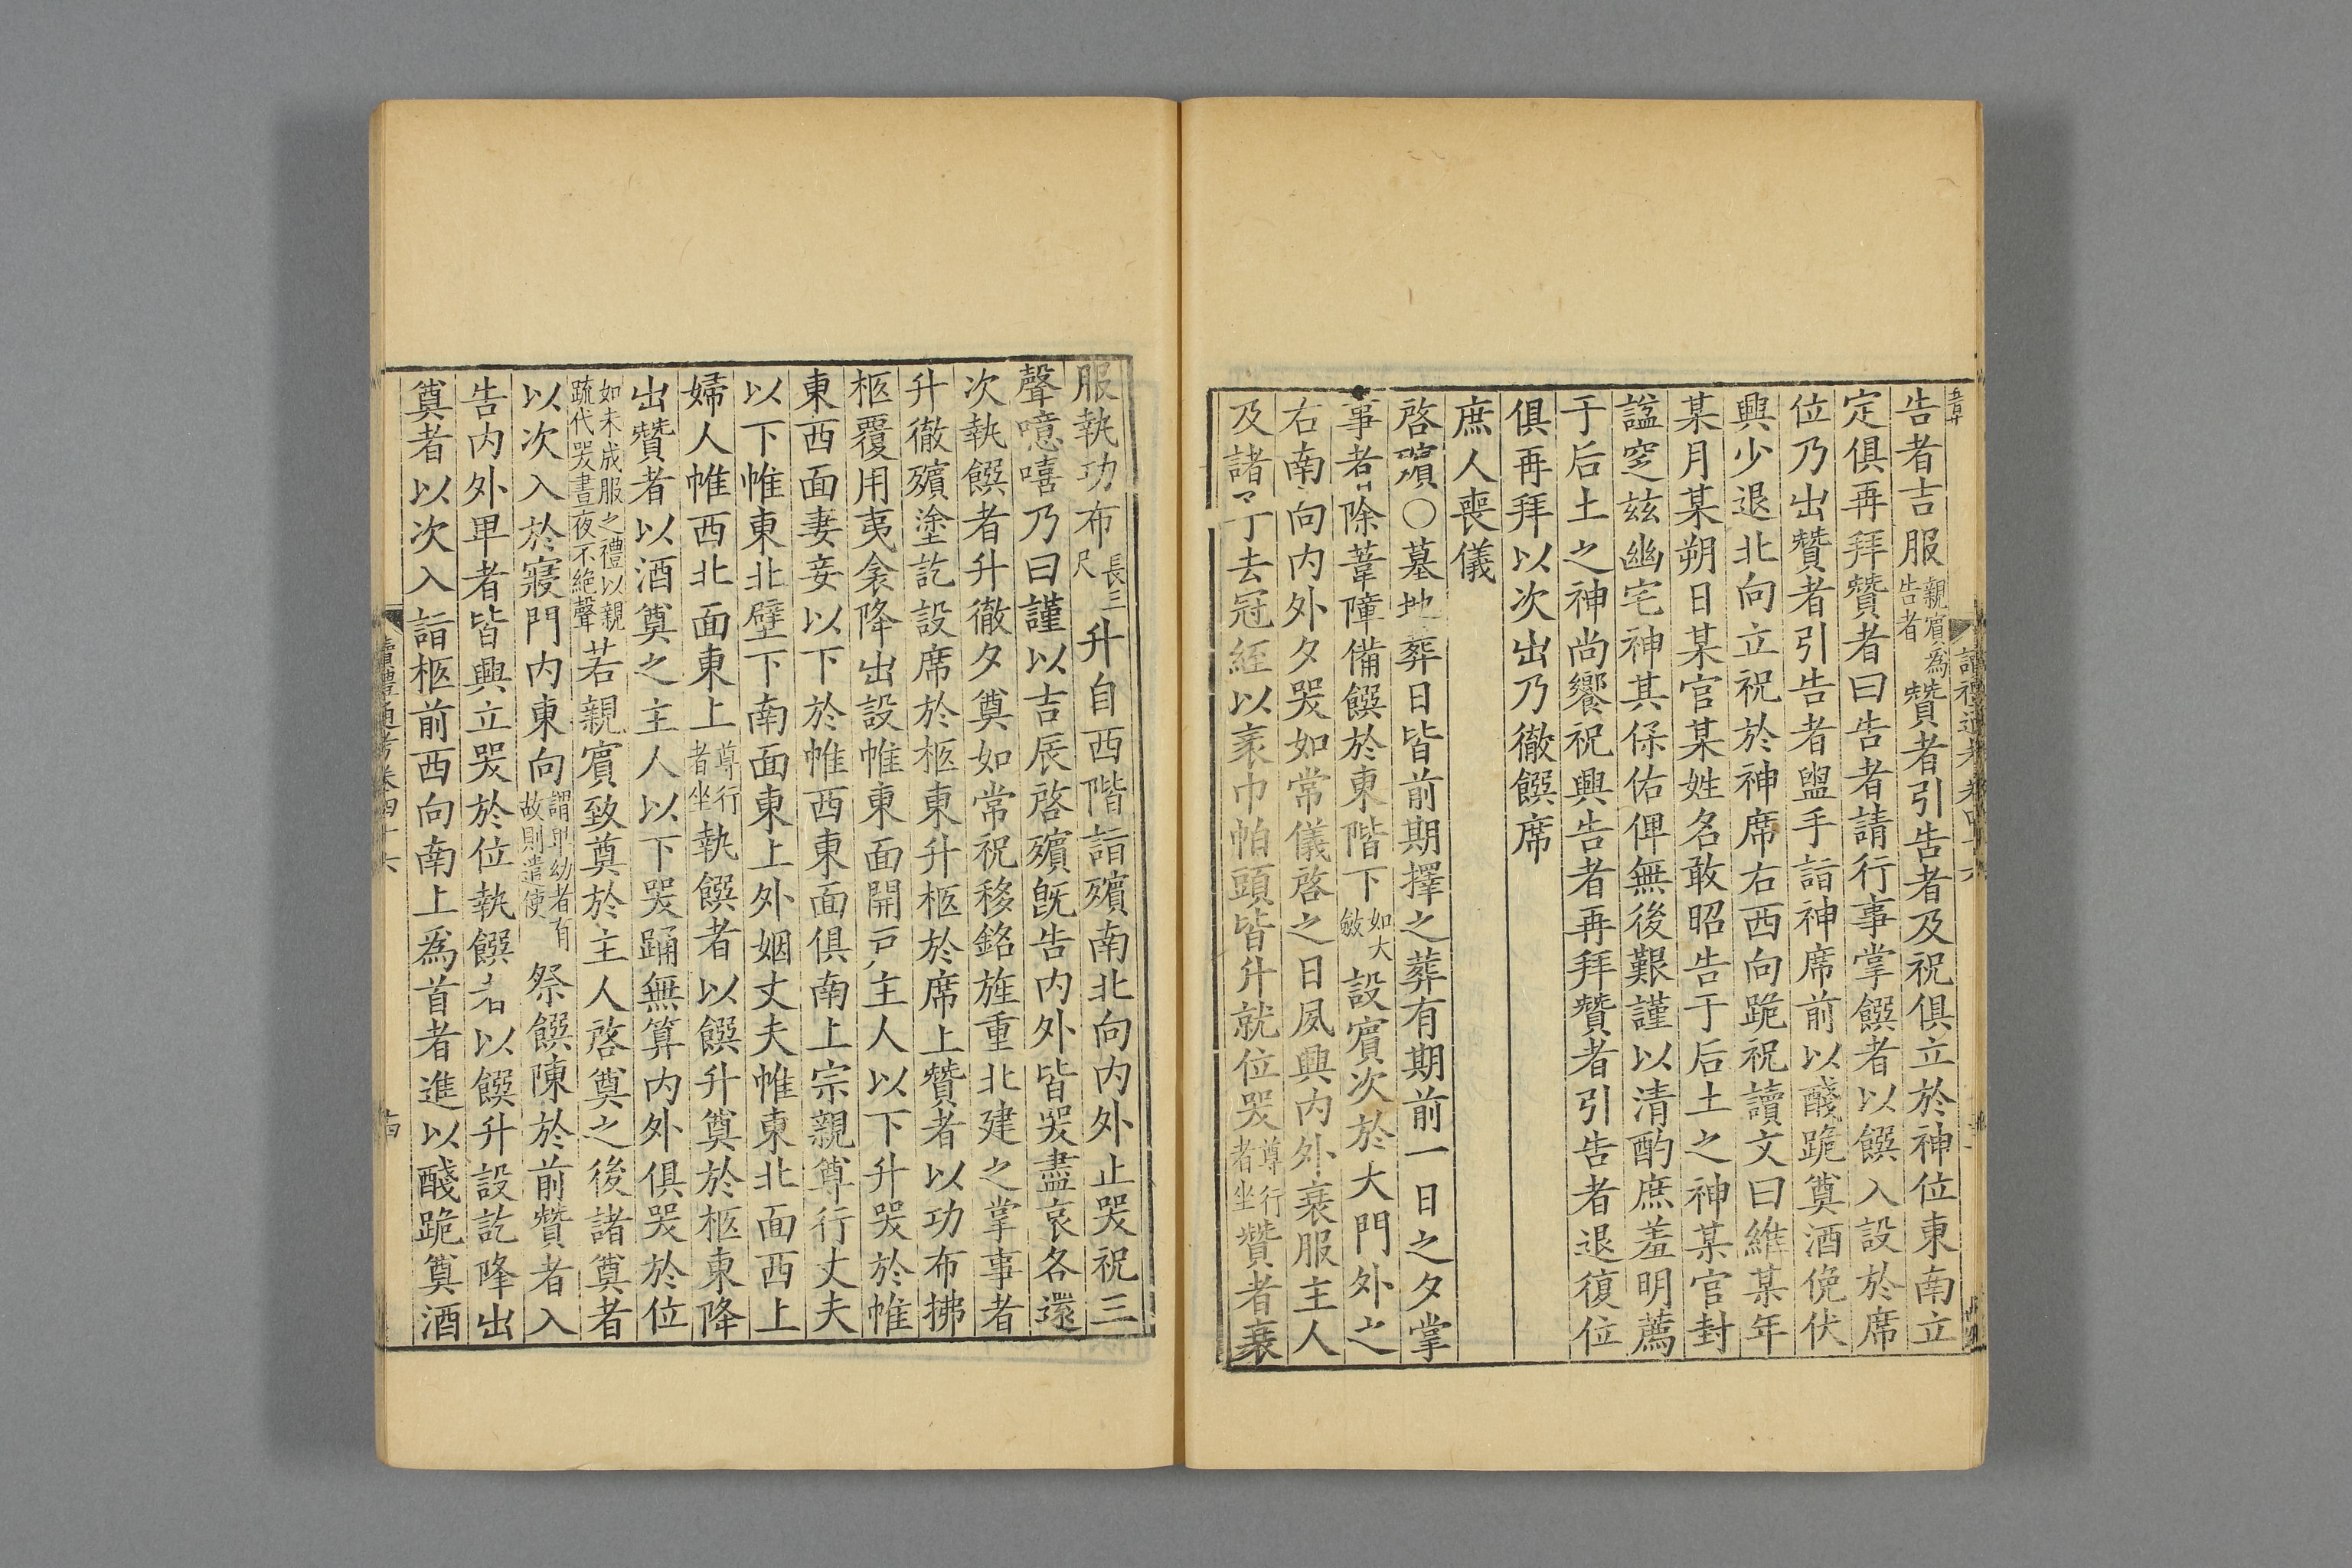 告者吉服親賓爲告者贊者引告者及祝俱立於神位東南立
定俱再拜贊者曰告者請行事掌饌者以饌入設於席
位乃出贊者引告者盥手詣神席前以醆跪奠酒俛伏
興少退北向立祝於神席右西向跪祝讀文曰維某年
某月某朔日某官某姓名敢昭告于后土之神某官封
諡窆兹幽宅神其保佑俾無後艱謹以清酌庶羞明薦
于后土之神尚饗祝興告者再拜贊者引告者退復位
俱再拜以次出乃徹饌席
庶人喪儀
啓殯○墓地葬日皆前期擇之葬有期前一日之夕掌
事者除葦障備饌於東階下如大斂設賓次於大門外之
右南向内外夕哭如常儀啓之日夙興内外衰服主人
及諸子去冠絰以衺巾帕頭皆升就位哭尊行者坐贊者衰
服執功布長三尺升自西階詣殯南北向内外止哭祝三
聲噫嘻乃曰謹以吉辰啓殯旣告内外皆哭盡哀各還
次執饌者升徹夕奠如常祝移銘旌重北建之掌事者
升徹殯塗訖設席於柩東升柩於席上贊者以功布拂
柩覆用夷衾降出設帷東面開戸主人以下升哭於帷
東西面妻妾以下於帷西東面俱南上宗親尊行丈夫
以下帷東北壁下南面東上外姻丈夫帷東北面西上
婦人帷西北面東上尊行者坐執饌者以饌升奠於柩東降
出贊者以酒奠之主人以下哭踊無算内外俱哭於位
如未成服之禮以親疏代哭晝夜不絶聲若親賓致奠於主人啓奠之後諸奠者
以次入於寢門内東向謂卑幼者有故則遣使祭饌陳於前贊者入
告内外卑者皆興立哭於位執饌者以饌升設訖降出
奠者以次入詣柩前西向南上爲首者進以醆跪奠酒
讀禮通考卷四十六